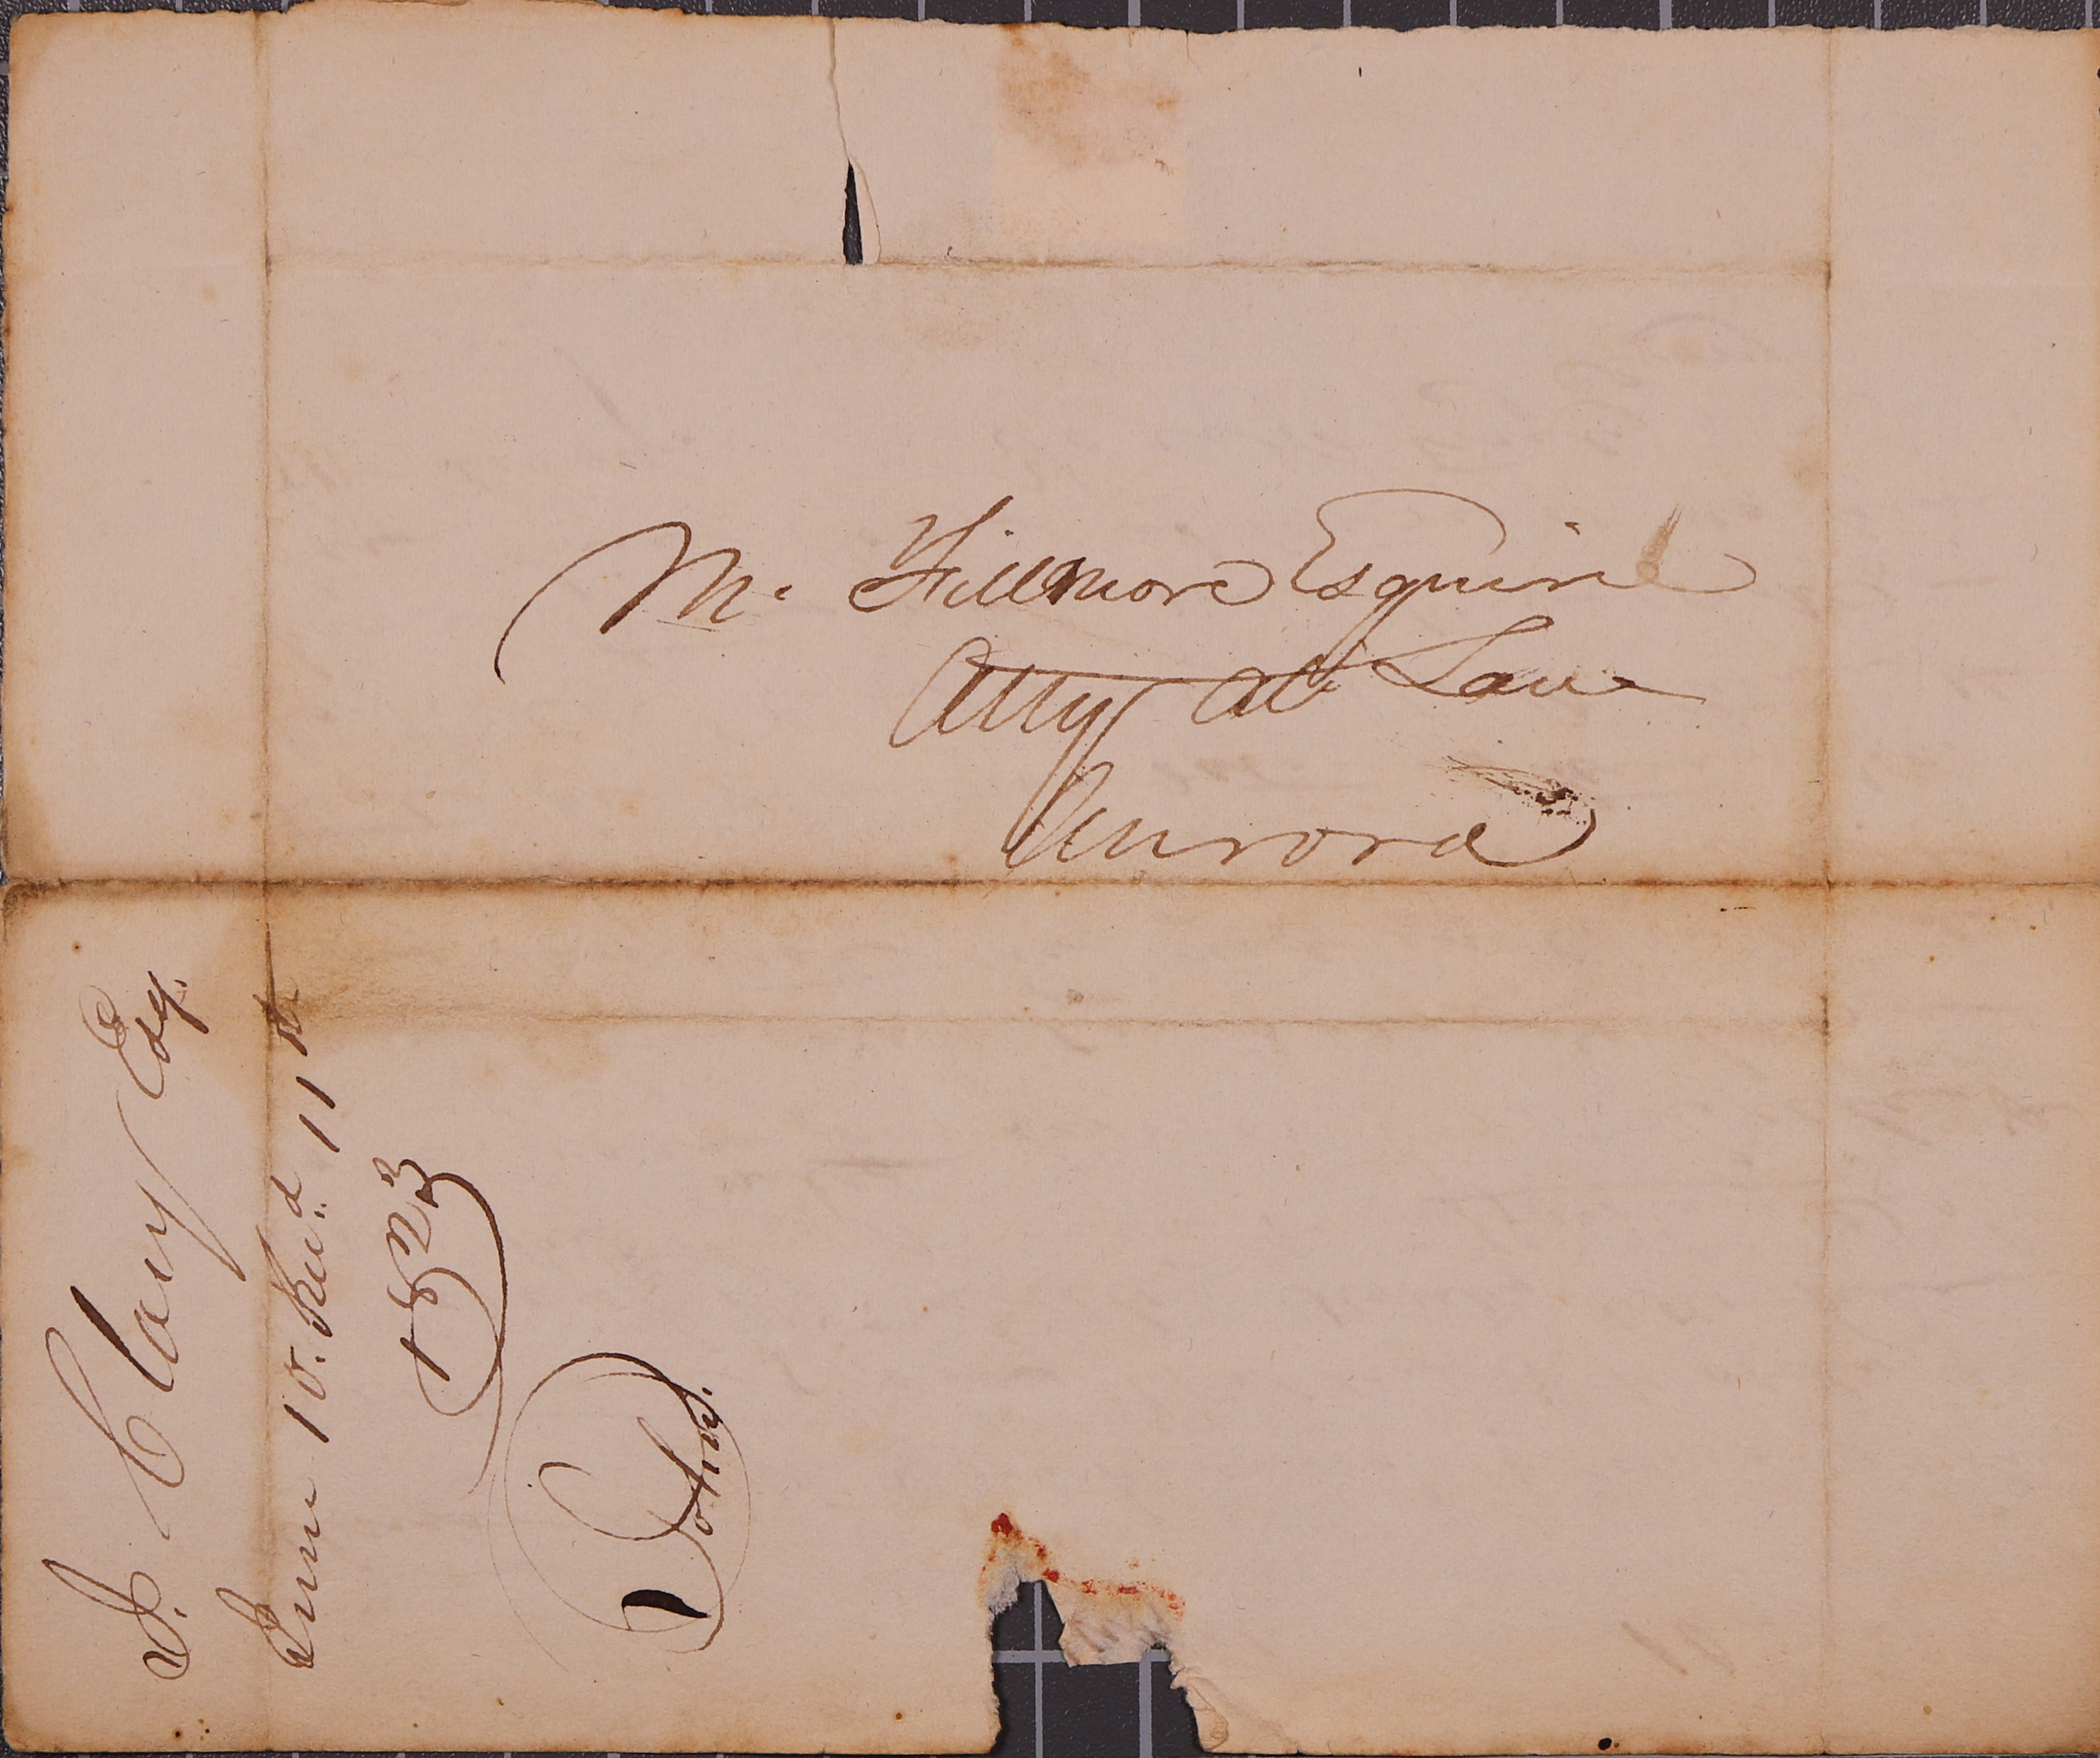 M. Fillmore Esquire
Atty at Law
Aurora
J. Clary Esq.
June 10. Rec.d 11th
1823